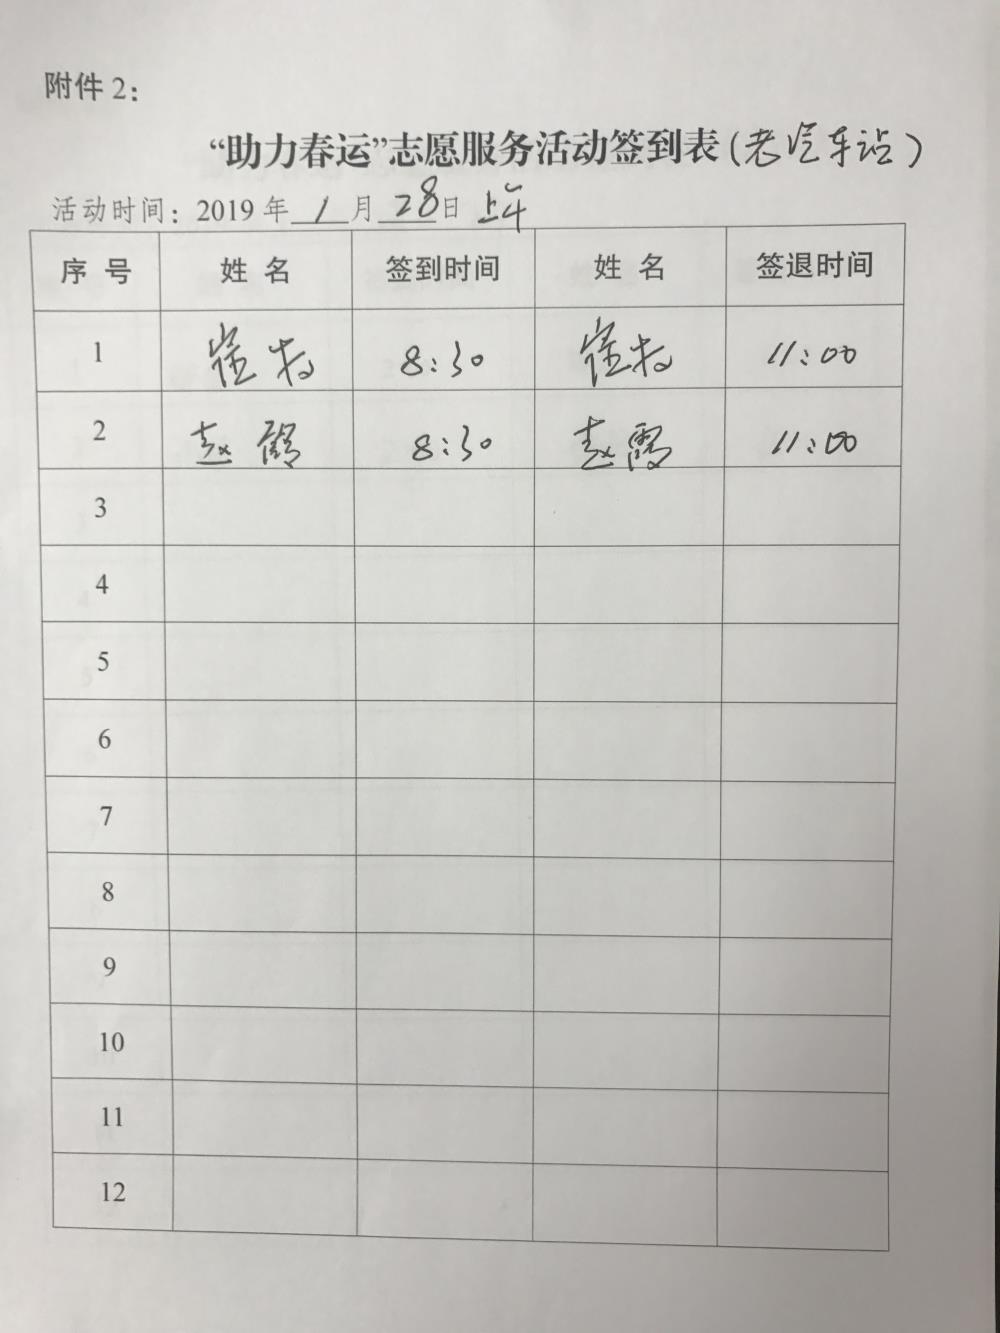 附件 2：
“助力春运”志愿服务活动签到表(老汽车站)
活动时间：2019 年 1 月 28 日 上午
序号 姓名 签到时间 姓名 签退时间
1 崔 8:30 崔 11:00
2 赵霞 8:30 赵霞 11:00
3
4
5
6
7
8
9
10
11
12